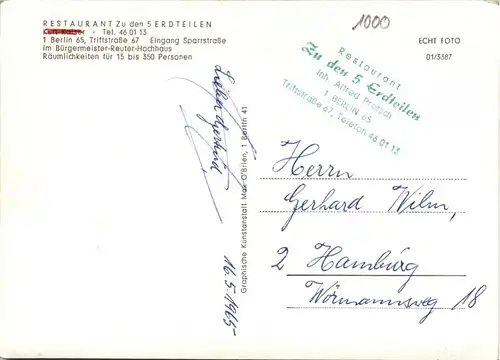 RESTAURANT Zu den 5 ERDTEILEN
Curt Kaiser - Tel. 46 01 13
1 Berlin 65, Triftstraße 67 Eingang Sparrstraße
im Bürgermeister-Reuter-Hochhaus
Räumlichkeiten für 15 bis 350 Personen
1000
ECHT FOTO
01/3387
Restaurant
Zu den 5 Erdteilen
Inh. Alfred Pretsch
1 BERLIN 65
Triftstraße 67, Telefon 46 01 13
Lieber Gerhard
16.5.1965
Graphische Kunstanstalt Max O'Brien, 1 Berlin 41
Herrn
Gerhard Wilm,
2 Hamburg
Wörmannsweg 18